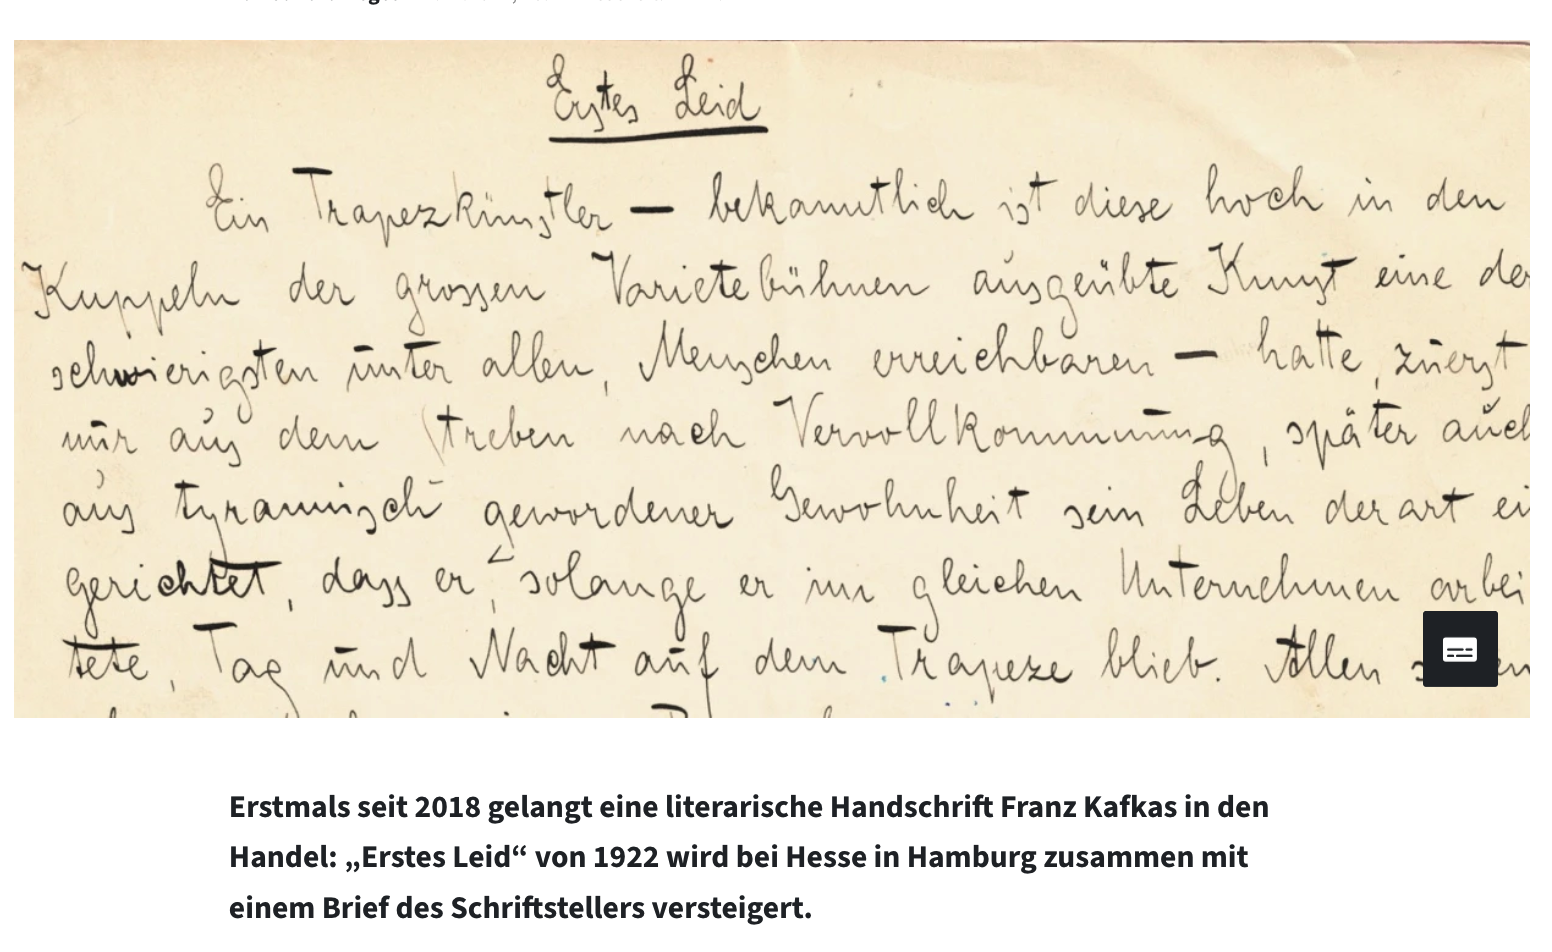 Erstes Leid
Ein Trapezkünstler — bekanntlich ist diese hoch in den
Kuppeln der grossen Varietebühnen ausgeübte Kunst eine der
schwierigsten unter allen, Menschen erreichbaren — hatte, zuerst
nur aus dem Streben nach Vervollkommnung, später auch
aus tyrannisch gewordener Gewohnheit sein Leben derart ei
gerichtet, dass er, solange er im gleichen Unternehmen arbei
tete, Tag und Nacht auf dem Trapeze blieb. Allen
Erstmals seit 2018 gelangt eine literarische Handschrift Franz Kafkas in den
Handel: „Erstes Leid“ von 1922 wird bei Hesse in Hamburg zusammen mit
einem Brief des Schriftstellers versteigert.